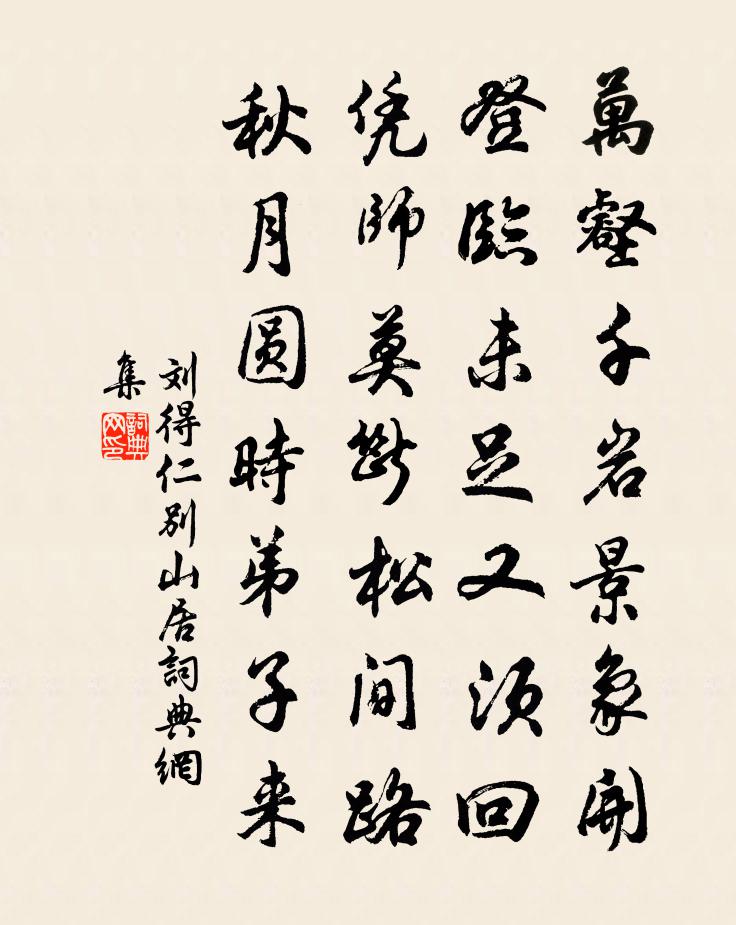 萬壑千岩景象開
登臨未足又須回
凭師莫斷松間路
秋月圓時弟子来
刘得仁别山居詞典網
集
詞典網印